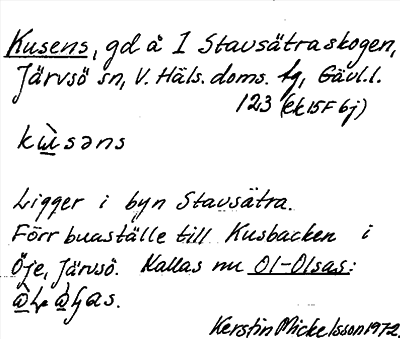 Kusens, gd å 1 Stavsätraskogen,
Järvsö sn, V. Häls. doms. tg, Gävl.l.
123 (ek 15F 6j)
kùsəns
Ligger i byn Stavsätra.
Förr buaställe till Kusbacken i
Öje, Järvsö. Kallas nu Ol-Olsas:
Kerstin Mickelsson 1972.